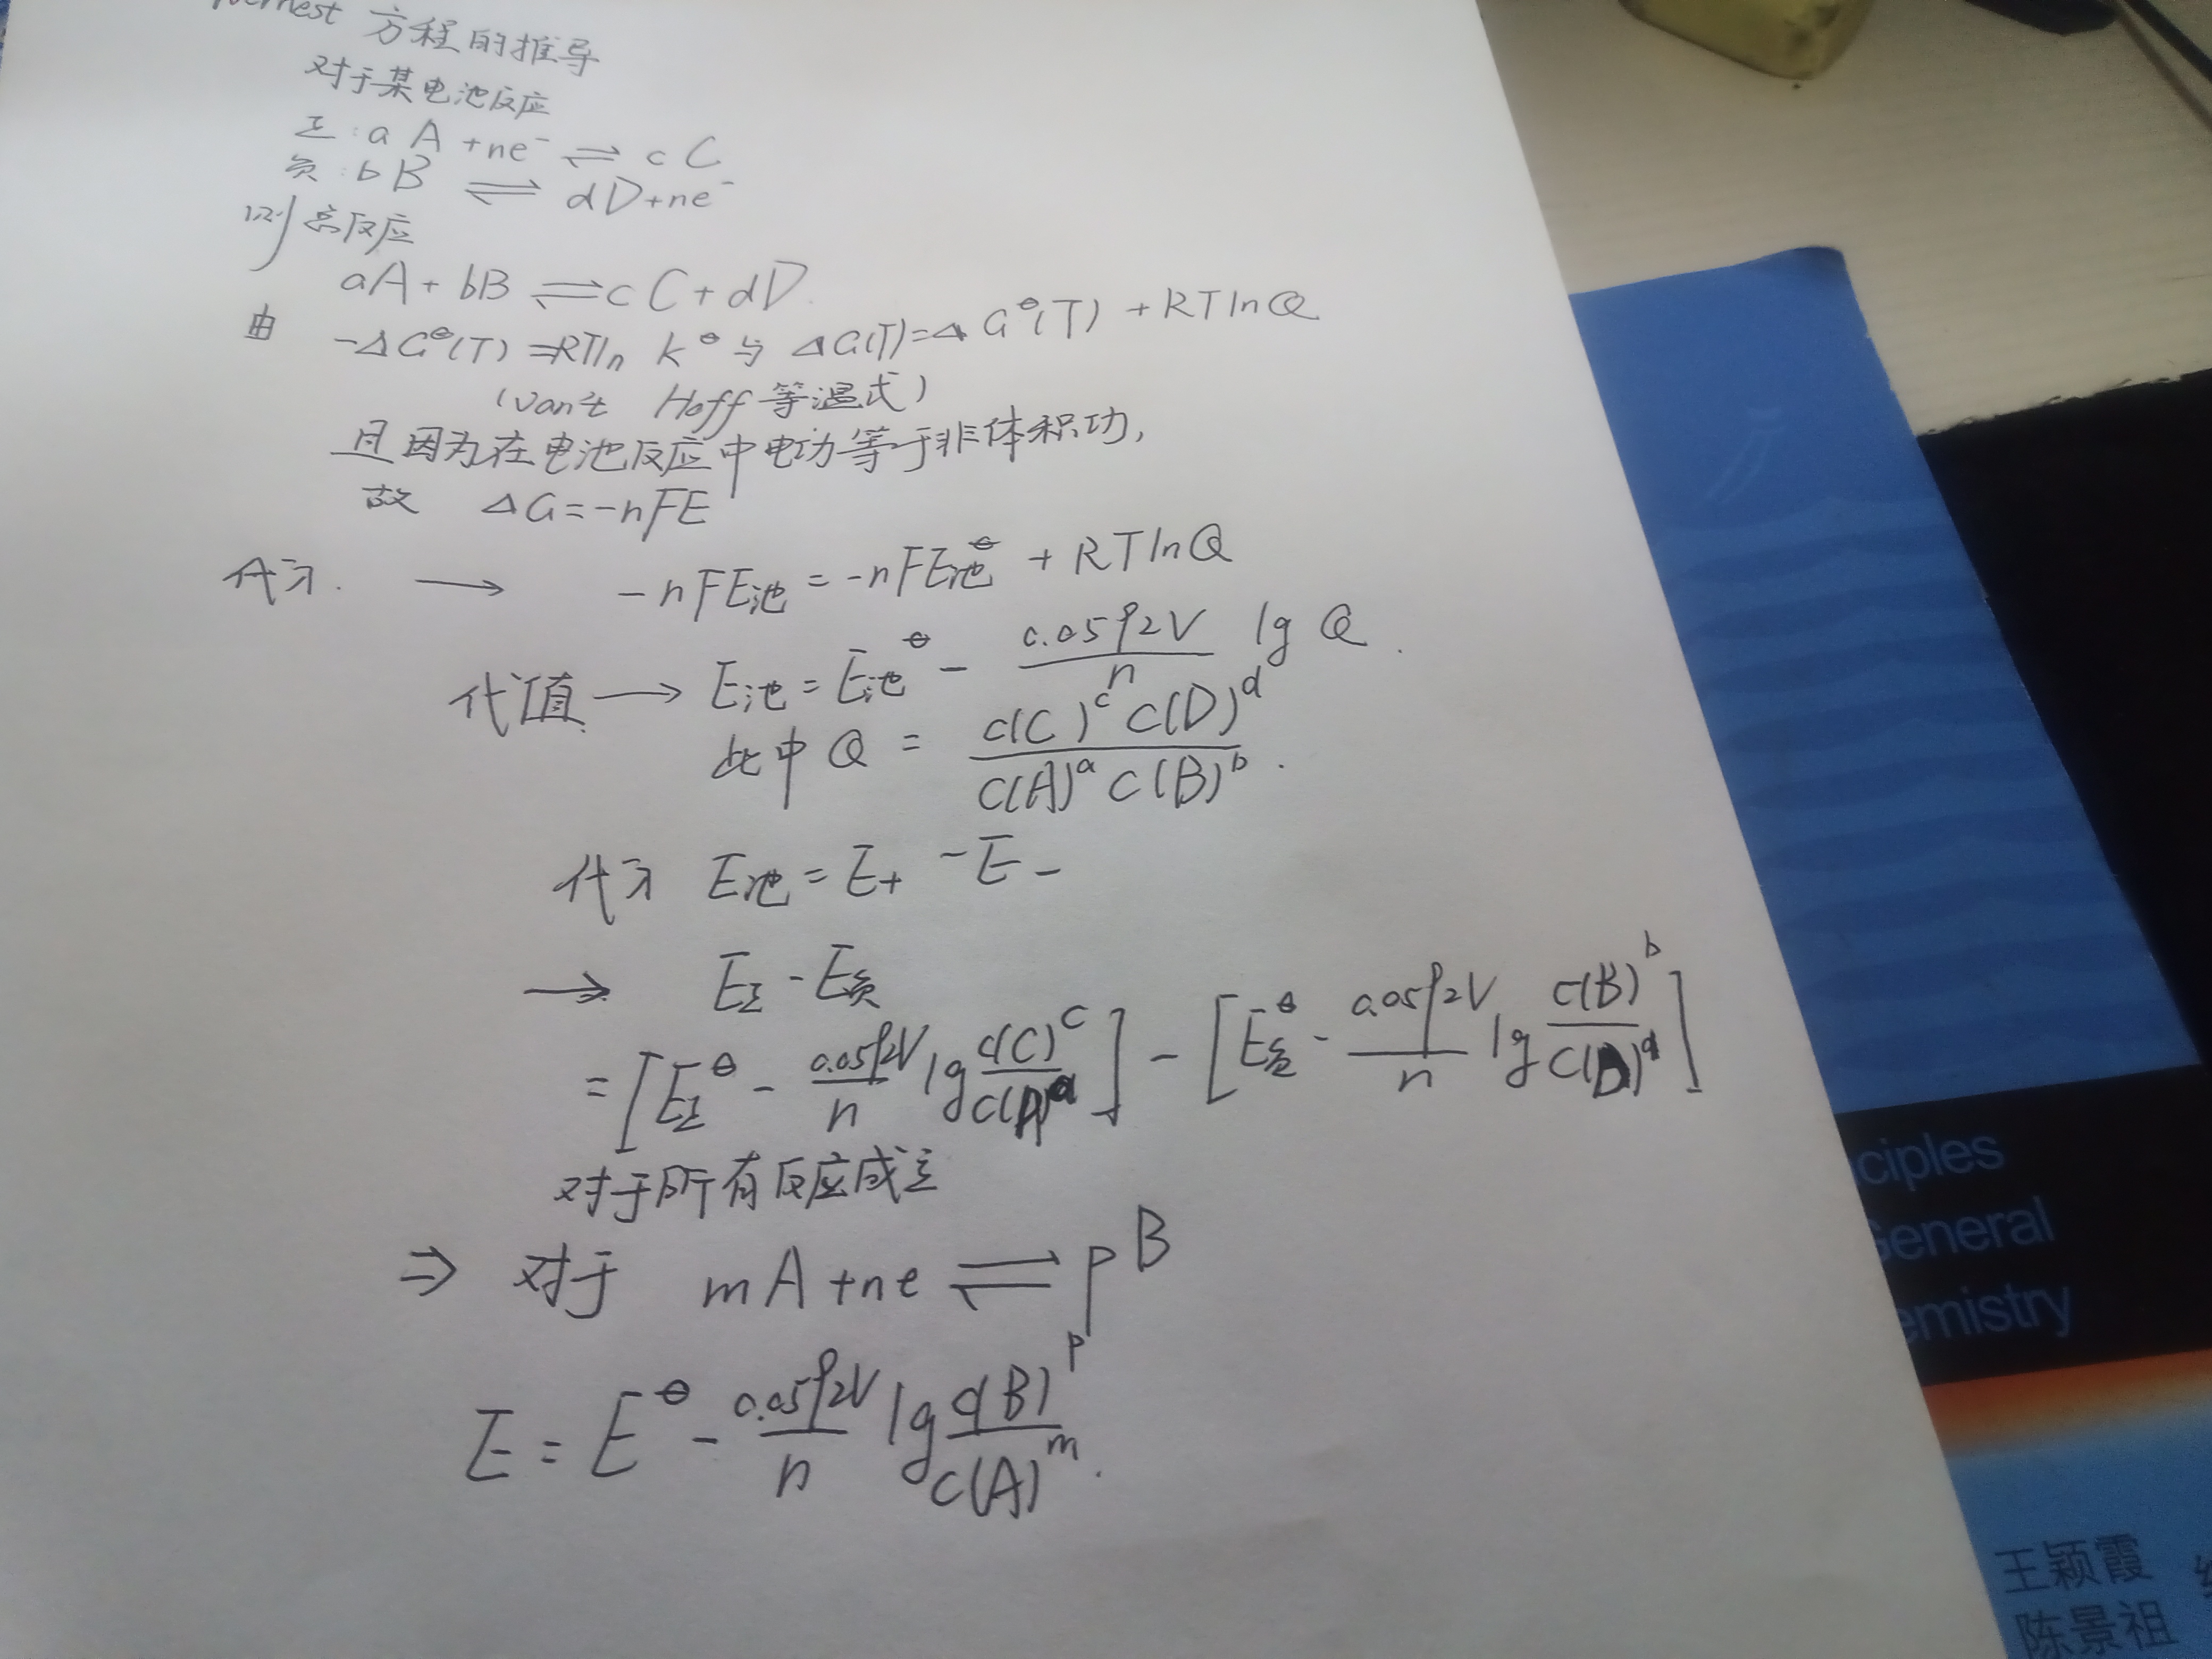 Nernest 方程的推导
对于某电池反应
正: a A + ne⁻ ⇌ c C
负: b B ⇌ dD + ne⁻
则总反应
aA + bB ⇌ cC + dD.
由 -ΔG^θ(T) = RTln K^θ 与 ΔG(T) = ΔG^θ(T) + RTlnQ
(Van't Hoff 等温式)
且因为在电池反应中电功等于非体积功,
故 ΔG = -nFE
代入. → -nFE池 = -nFE池^θ + RTlnQ
代值 → E池 = E池^θ - 0.0592V/n lg Q.
此中 Q = c(C)^c c(D)^d / c(A)^a c(B)^b.
代入 E池 = E+ - E-
→ E正 - E负
= [E正^θ - 0.0592V/n lg c(C)^c/c(A)^a] - [E负^θ - 0.0592V/n lg c(B)^b/c(D)^d]
对于所有反应成立
⇒ 对于 mA + ne ⇌ pB
E = E^θ - 0.0592V/n lg c(B)^p/c(A)^m.
ciples
General
emistry
王颖霞
陈景祖